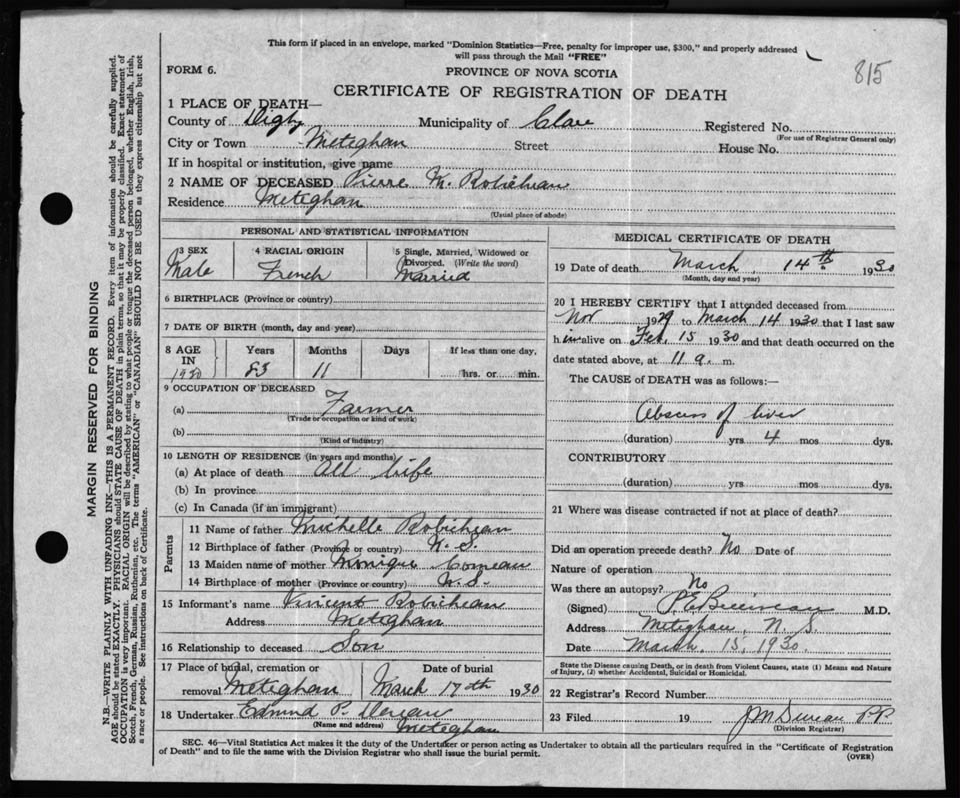 This form if placed in an envelope, marked "Dominion Statistics—Free, penalty for improper use, $300," and properly addressed
will pass through the Mail "FREE"
FORM 6.
PROVINCE OF NOVA SCOTIA
815
CERTIFICATE OF REGISTRATION OF DEATH
1 PLACE OF DEATH—
County of Digby Municipality of Clare Registered No.
(For use of Registrar General only)
City or Town Meteghan Street House No.
If in hospital or institution, give name
2 NAME OF DECEASED Pierre M. Robicheau
Residence Meteghan
(Usual place of abode)
PERSONAL AND STATISTICAL INFORMATION
3 SEX 4 RACIAL ORIGIN 5 Single, Married, Widowed or
Divorced. (Write the word)
Male French Married
6 BIRTHPLACE (Province or country)
7 DATE OF BIRTH (month, day and year)
8 AGE IN Years Months Days If less than one day,
1930 83 11 hrs. or min.
9 OCCUPATION OF DECEASED
(a) Farmer
(Trade or occupation or kind of work)
(b)
(Kind of industry)
10 LENGTH OF RESIDENCE (in years and months)
(a) At place of death All life
(b) In province
(c) In Canada (if an immigrant)
Parents
11 Name of father Michelle Robicheau
12 Birthplace of father (Province or country) N. S.
13 Maiden name of mother Monique Comeau
14 Birthplace of mother (Province or country) N. S.
15 Informant's name Vincent Robicheau
Address Meteghan
16 Relationship to deceased Son
17 Place of burial, cremation or Date of burial
removal Meteghan March 17th 1930
18 Undertaker Edmund P.
(Name and address) Meteghan
MEDICAL CERTIFICATE OF DEATH
19 Date of death March 14th 1930
(Month, day and year)
20 I HEREBY CERTIFY that I attended deceased from
Nov 1929 to March 14 1930 that I last saw
him alive on Feb. 15 1930 and that death occurred on the
date stated above, at 11 a. m.
The CAUSE of DEATH was as follows:—
Abscess of liver
(duration) yrs 4 mos dys.
CONTRIBUTORY
(duration) yrs. mos. dys.
21 Where was disease contracted if not at place of death?
Did an operation precede death? No Date of
Nature of operation
Was there an autopsy? No
(Signed) P. E. M.D.
Address Meteghan, N. S.
Date March. 15, 1930.
State the Disease causing Death, or in death from Violent Causes, state (1) Means and Nature
of Injury, (2) whether Accidental, Suicidal or Homicidal.
22 Registrar's Record Number
23 Filed 19 P.P.
(Division Registrar)
SEC. 46—Vital Statistics Act makes it the duty of the Undertaker or person acting as Undertaker to obtain all the particulars required in the "Certificate of Registration
of Death" and to file the same with the Division Registrar who shall issue the burial permit.
(OVER)
MARGIN RESERVED FOR BINDING
N.B.—WRITE PLAINLY WITH UNFADING INK—THIS IS A PERMANENT RECORD. Every item of information should be carefully supplied.
AGE should be stated EXACTLY. PHYSICIANS should STATE CAUSE OF DEATH in plain terms, so that it may be properly classified. Exact statement of
OCCUPATION is very important. RACIAL ORIGIN will be described by stating to what people or tongue the deceased person belonged, whether English, Irish,
Scotch, French, German, Russian, Ruthenian, etc. The terms "AMERICAN" or "CANADIAN" SHOULD NOT BE USED as they express citizenship but not
a race or people. See instructions on back of Certificate.